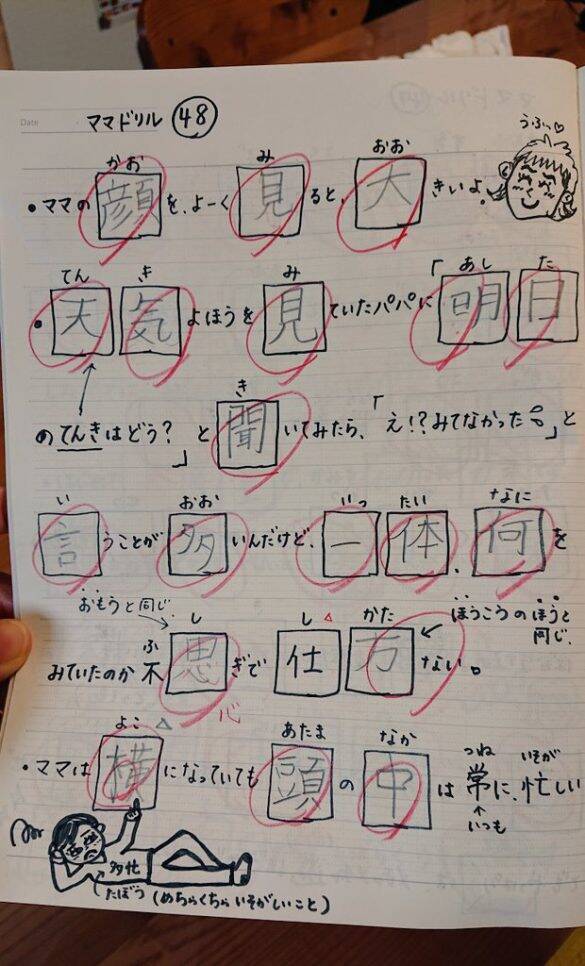 Date
ママドリル ㊽
うふっ♡
かお み おお
・ママの顔を、よーく見ると、大きいよ。
てん き み あし た
・天気よほうを見ていたパパに「明日
き
のてんきはどう?」と聞いてみたら、「え!?みてなかった」と
い おお いっ たい なに
言うことが多いんだけど、一体、何を
おもうと同じ ほうこうのほうと同じ、
ふ し し かた
みていたのか不思ぎで仕方ない。
心
よこ あたま なか つね いそが
・ママは横になっていても頭の中は常に、忙しい
いつも
多忙
たぼう(めちゃくちゃいそがしいこと)